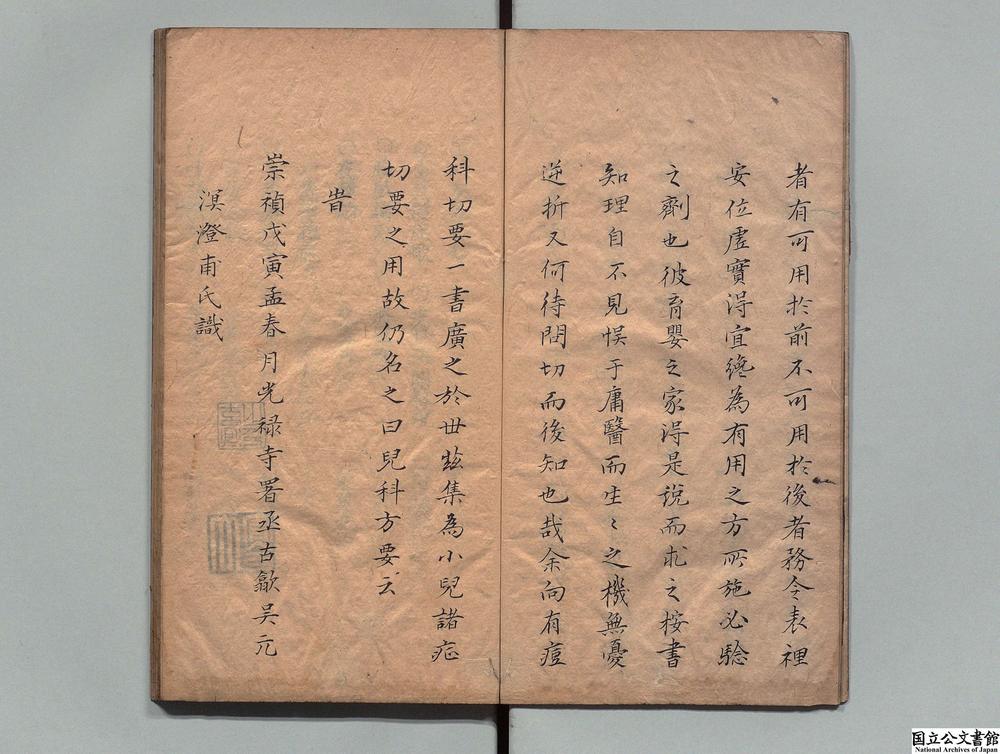 者有可用於前不可用於後者務令表裡
安位虛實得宜纔為有用之方所施必驗
之劑也彼育嬰之家得是說而求之按書
知理自不見悞于庸醫而生〻之機無憂
逆折又何待問切而後知也哉余向有痘
科切要一書廣之於世玆集為小兒諸症
切要之用故仍名之曰兒科方要云
旹
崇禎戊寅孟春月光禄寺署丞古歙吳元
溟澄甫氏識
国立公文書館
National Archives of Japan